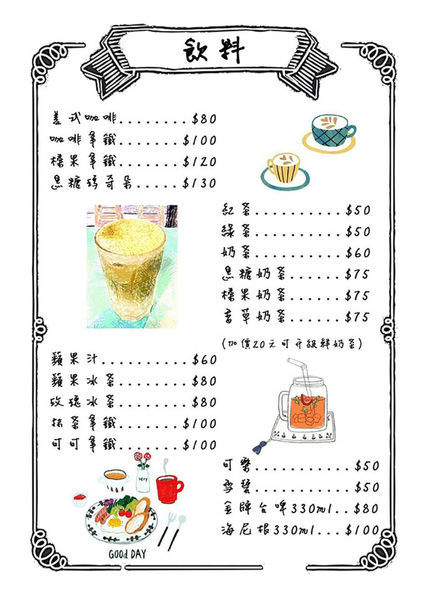 飲料
美式咖啡.......$80
咖啡拿鐵.......$100
榛果拿鐵.......$120
黑糖瑪奇朵......$130
紅茶..........$50
綠茶..........$50
奶茶..........$60
黑糖奶茶.......$75
榛果奶茶.......$75
香草奶茶.......$75
(加價20元可升級鮮奶茶)
蘋果汁.........$60
蘋果冰茶.......$80
玫瑰冰茶.......$80
抹茶拿鐵.......$100
可可拿鐵.......$100
可樂..........$50
雪碧..........$50
金牌台啤330ml..$80
海尼根330ml...$100
HEY
GOOD DAY